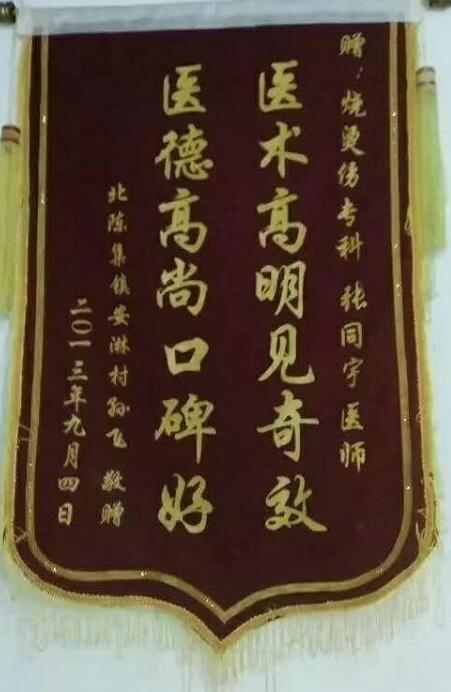 赠：烧烫伤专科 张同宇 医师
医术高明见奇效
医德高尚口碑好
北陈集镇安淋村孙飞 敬赠
二〇一三年九月四日